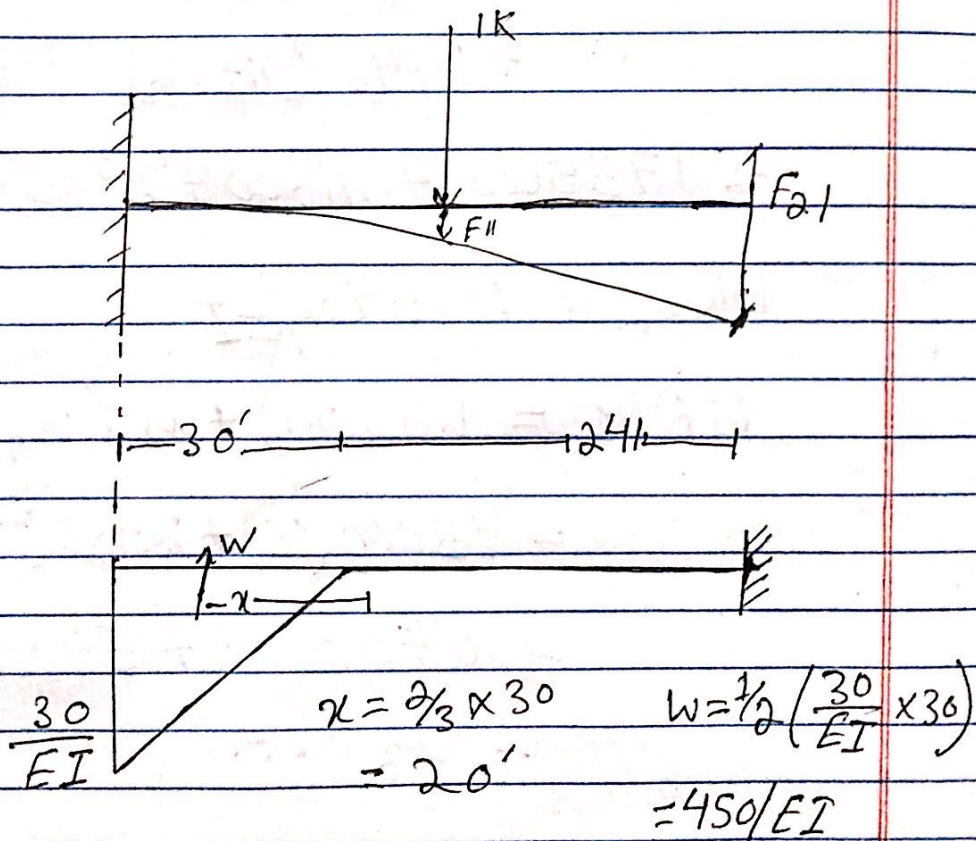 1K
F11
F21
30'
24'
W
x
30/EI
x = 2/3 × 30
= 20'
W = 1/2 (30/EI × 30)
= 450/EI